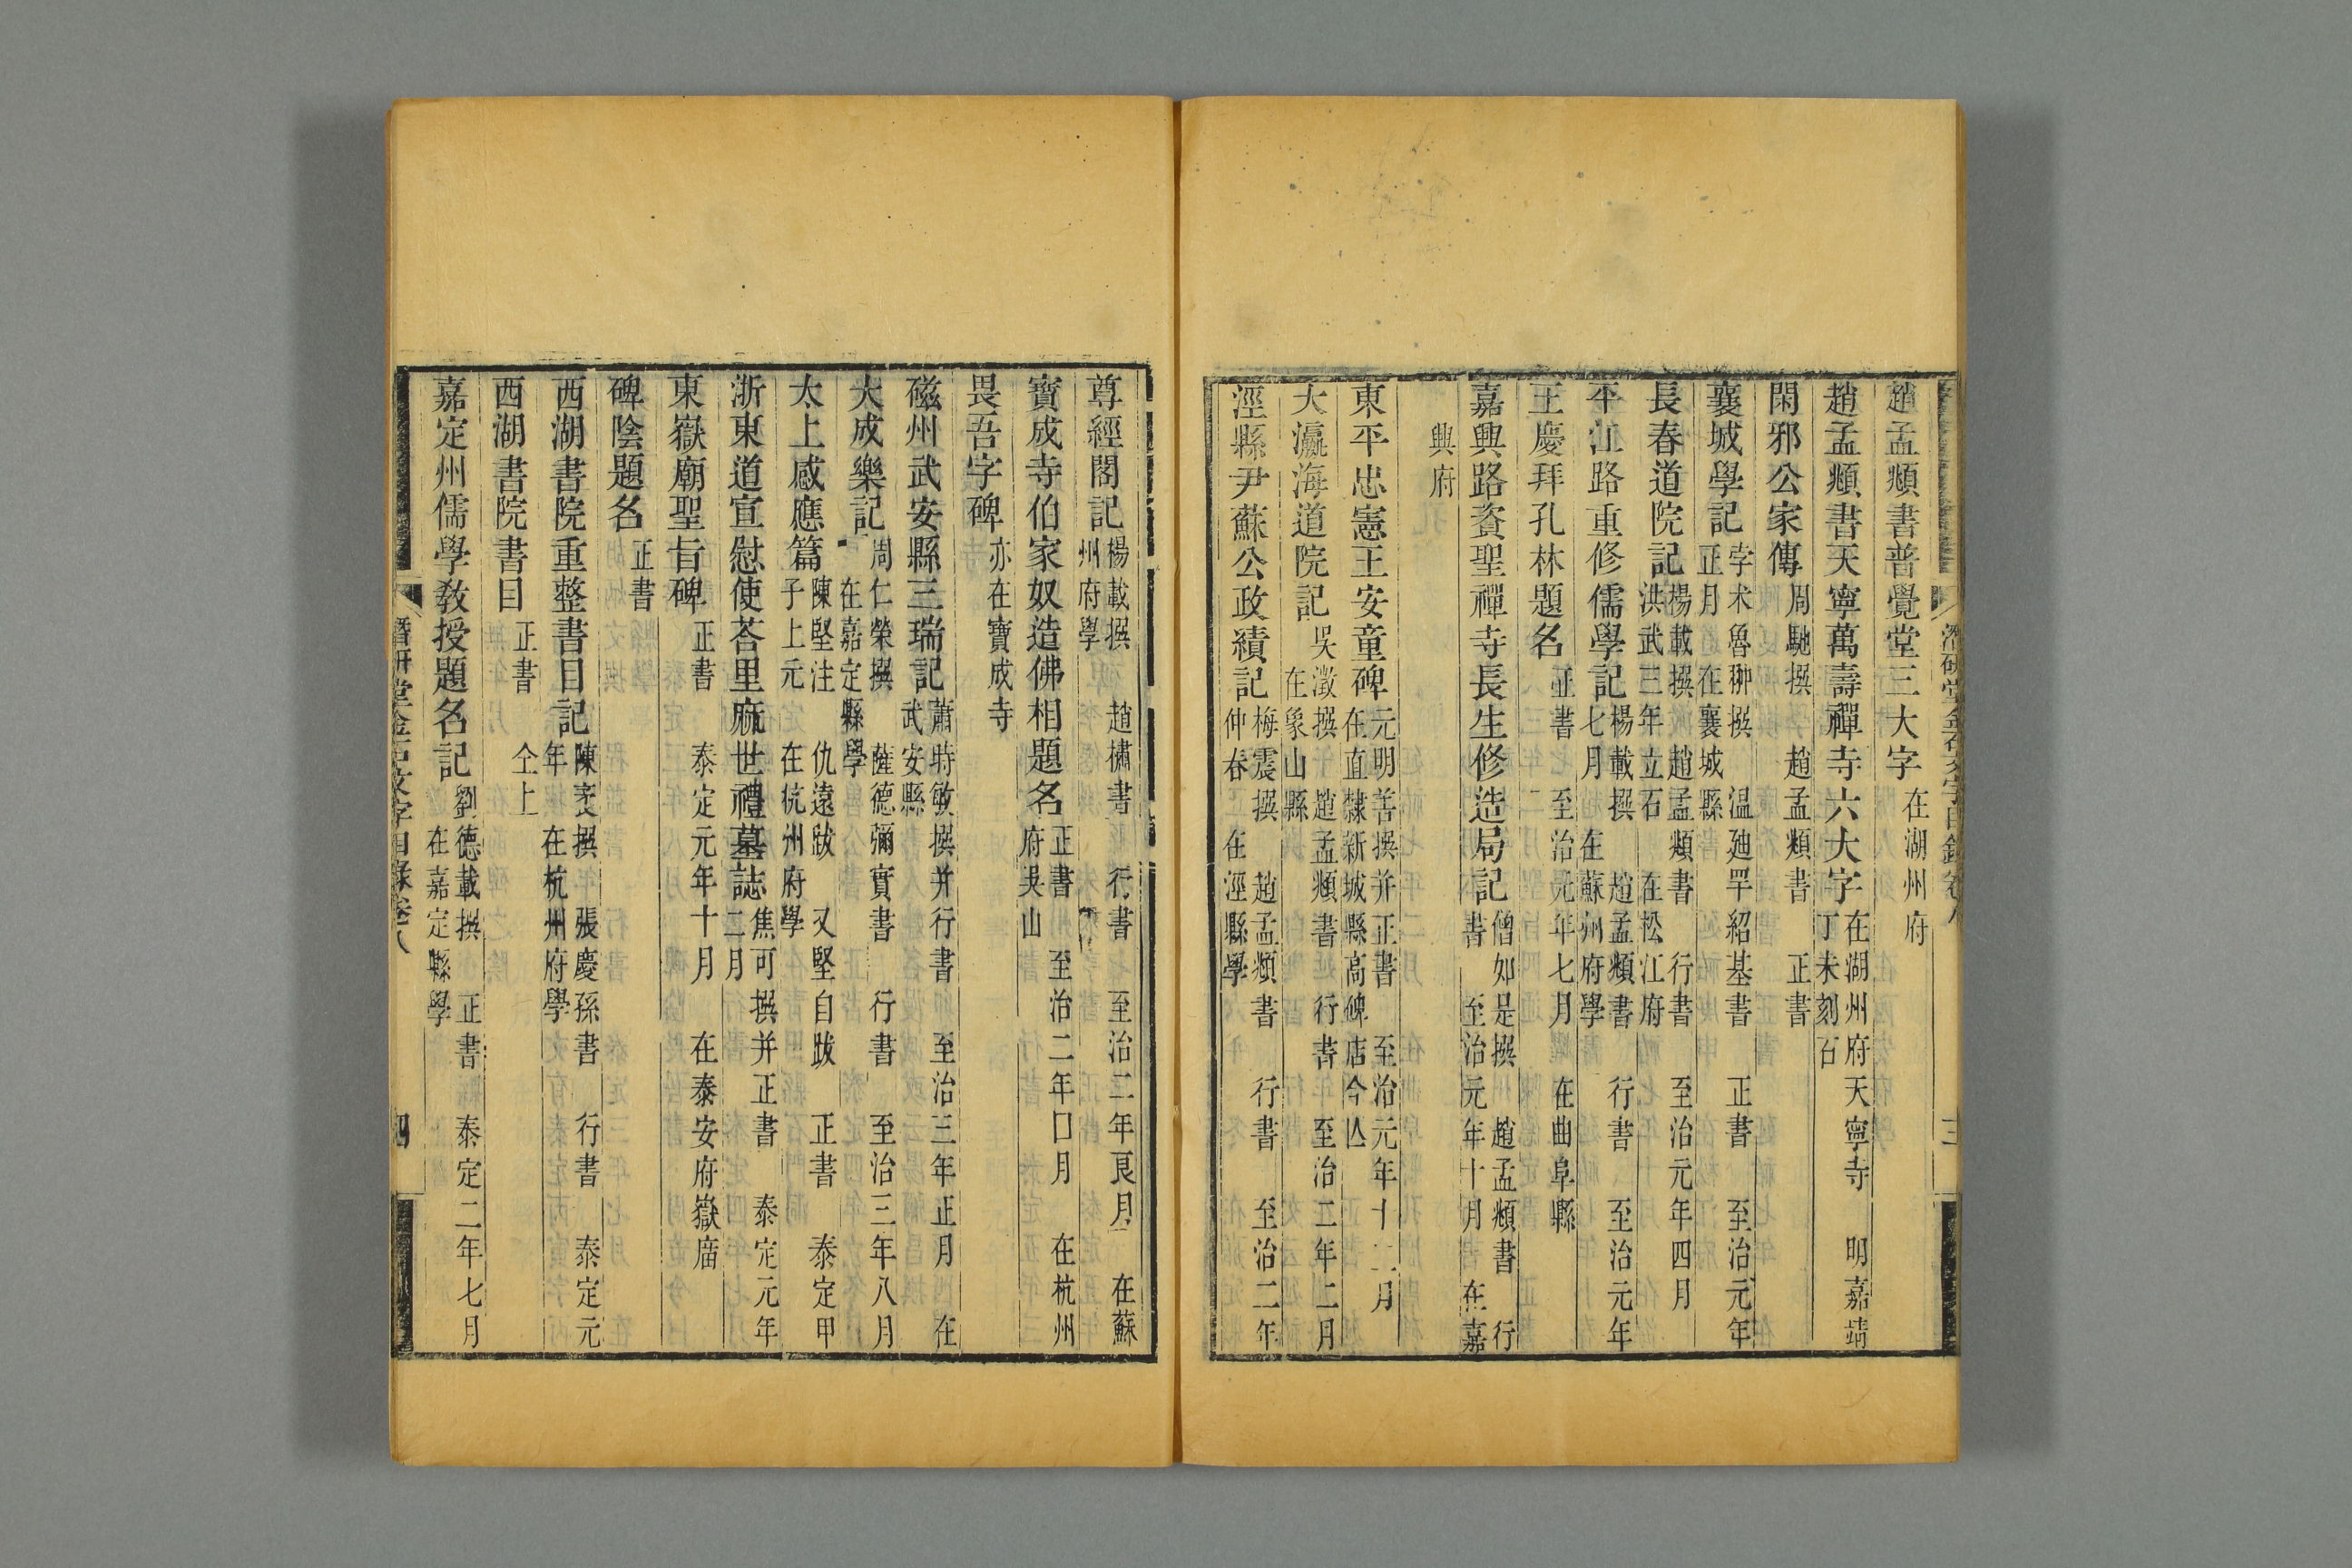 趙孟頫書普覺堂三大字 在湖州府
趙孟頫書天寧萬壽禪寺六大字 在湖州府天寧寺 明嘉靖丁未刻石
閑邪公家傳 周馳撰 趙孟頫書 正書
襄城學記 孛朮魯翀撰 温廸罕紹基書 正書 至治元年正月 在襄城縣
長春道院記 楊載撰 趙孟頫書 行書 至治元年四月 洪武三年立石 在松江府
平江路重修儒學記 楊載撰 趙孟頫書 行書 至治元年七月 在蘇州府學
王慶拜孔林題名 並書 至治元年七月 在曲阜縣
嘉興路資聖禪寺長生修造局記 僧如是撰 趙孟頫書 行書 至治元年十月 在嘉
興府
東平忠憲王安童碑 元明善撰并正書 至治元年十二月 在直隸新城縣高碑店今仆
大瀛海道院記 吳澂撰 趙孟頫書 行書 至治二年二月 在象山縣
涇縣尹蘇公政績記 梅震撰 趙孟頫書 行書 至治二年仲春 在涇縣學
潛研堂金石文字目錄卷八 三
尊經閣記 楊載撰 趙櫹書 行書 至治二年良月 在蘇州府學
寶成寺伯家奴造佛相題名 正書 至治二年囗月 在杭州府吳山
畏吾字碑 亦在寶成寺
磁州武安縣三瑞記 蕭時敏撰并行書 至治三年正月 在武安縣
大成樂記 周仁榮撰 薩德彌實書 行書 至治三年八月 在嘉定縣學
太上感應篇 陳堅注 仇遠跋 又堅自跋 正書 泰定甲子上元 在杭州府學
浙東道宣慰使荅里麻世禮墓誌 焦可撰并正書 泰定元年二月
東嶽廟聖旨碑 正書 泰定元年十月 在泰安府嶽庿
碑陰題名 正書
西湖書院重整書目記 陳袤撰 張慶孫書 行書 泰定元年 在杭州府學
西湖書院書目 正書 仝上
嘉定州儒學教授題名記 劉德載撰 正書 泰定二年七月 在嘉定縣學
潛研堂金石文字目錄卷八 四